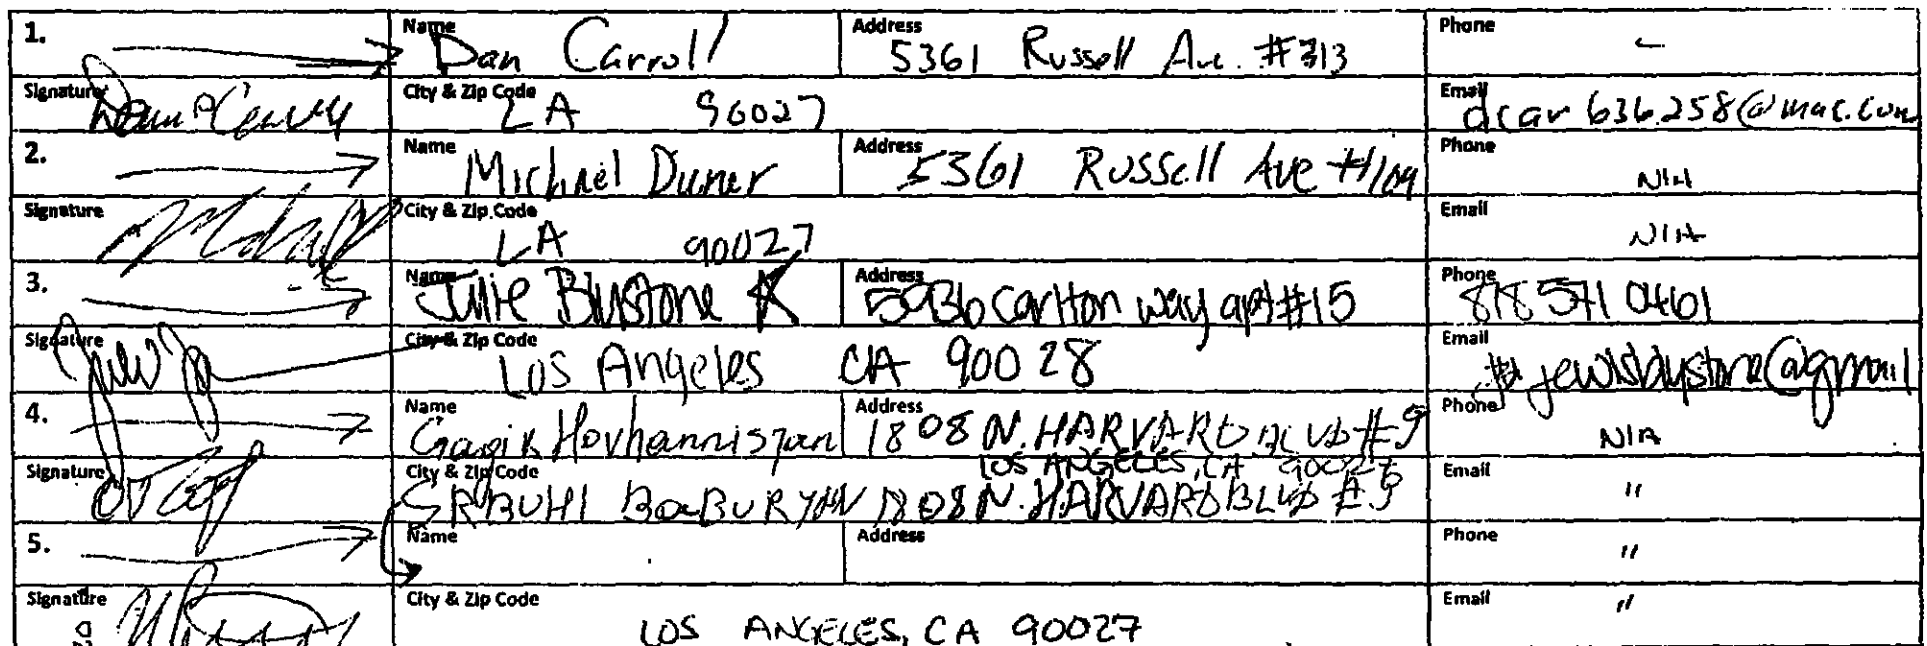 1. Name Dan Carroll Address 5361 Russell Ave. #313 Phone -
Signature City & Zip Code LA 90027 Email dcar636258@mac.com
2. Name Michael Duner Address 5361 Russell Ave #109 Phone N/A
Signature City & Zip Code LA 90027 Email N/A
3. Name Julie Blustone Address 5936 Carlton way apt #15 Phone 818 571 0461
Signature City & Zip Code Los Angeles CA 90028 Email
4. Name Gagik Hovhannisyan Address 1808 N. HARVARD BLVD #9 Phone N/A
LOS ANGELES, CA 90027
Signature City & Zip Code SRBUHI BABURYAN 1808 N. HARVARD BLVD #9 Email "
5. Name Address Phone "
Signature City & Zip Code LOS ANGELES, CA 90027 Email "